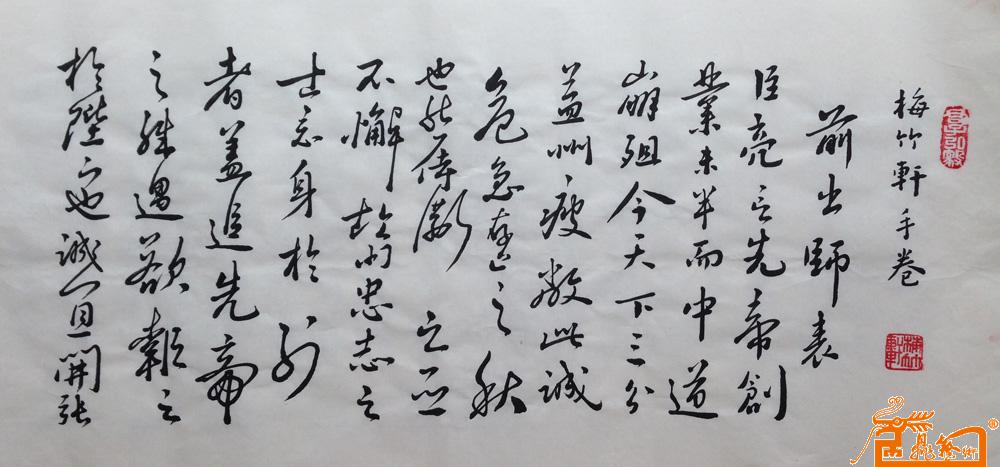 梅竹軒手卷
前出師表
臣亮言先帝創
業未半而中道
崩殂今天下三分
益州疲敝此誠
危急存亡之秋
也然侍衛之臣
不懈於內忠志之
士忘身於外
者蓋追先帝
之殊遇欲報之
於陛下也誠宜開張
梅竹軒